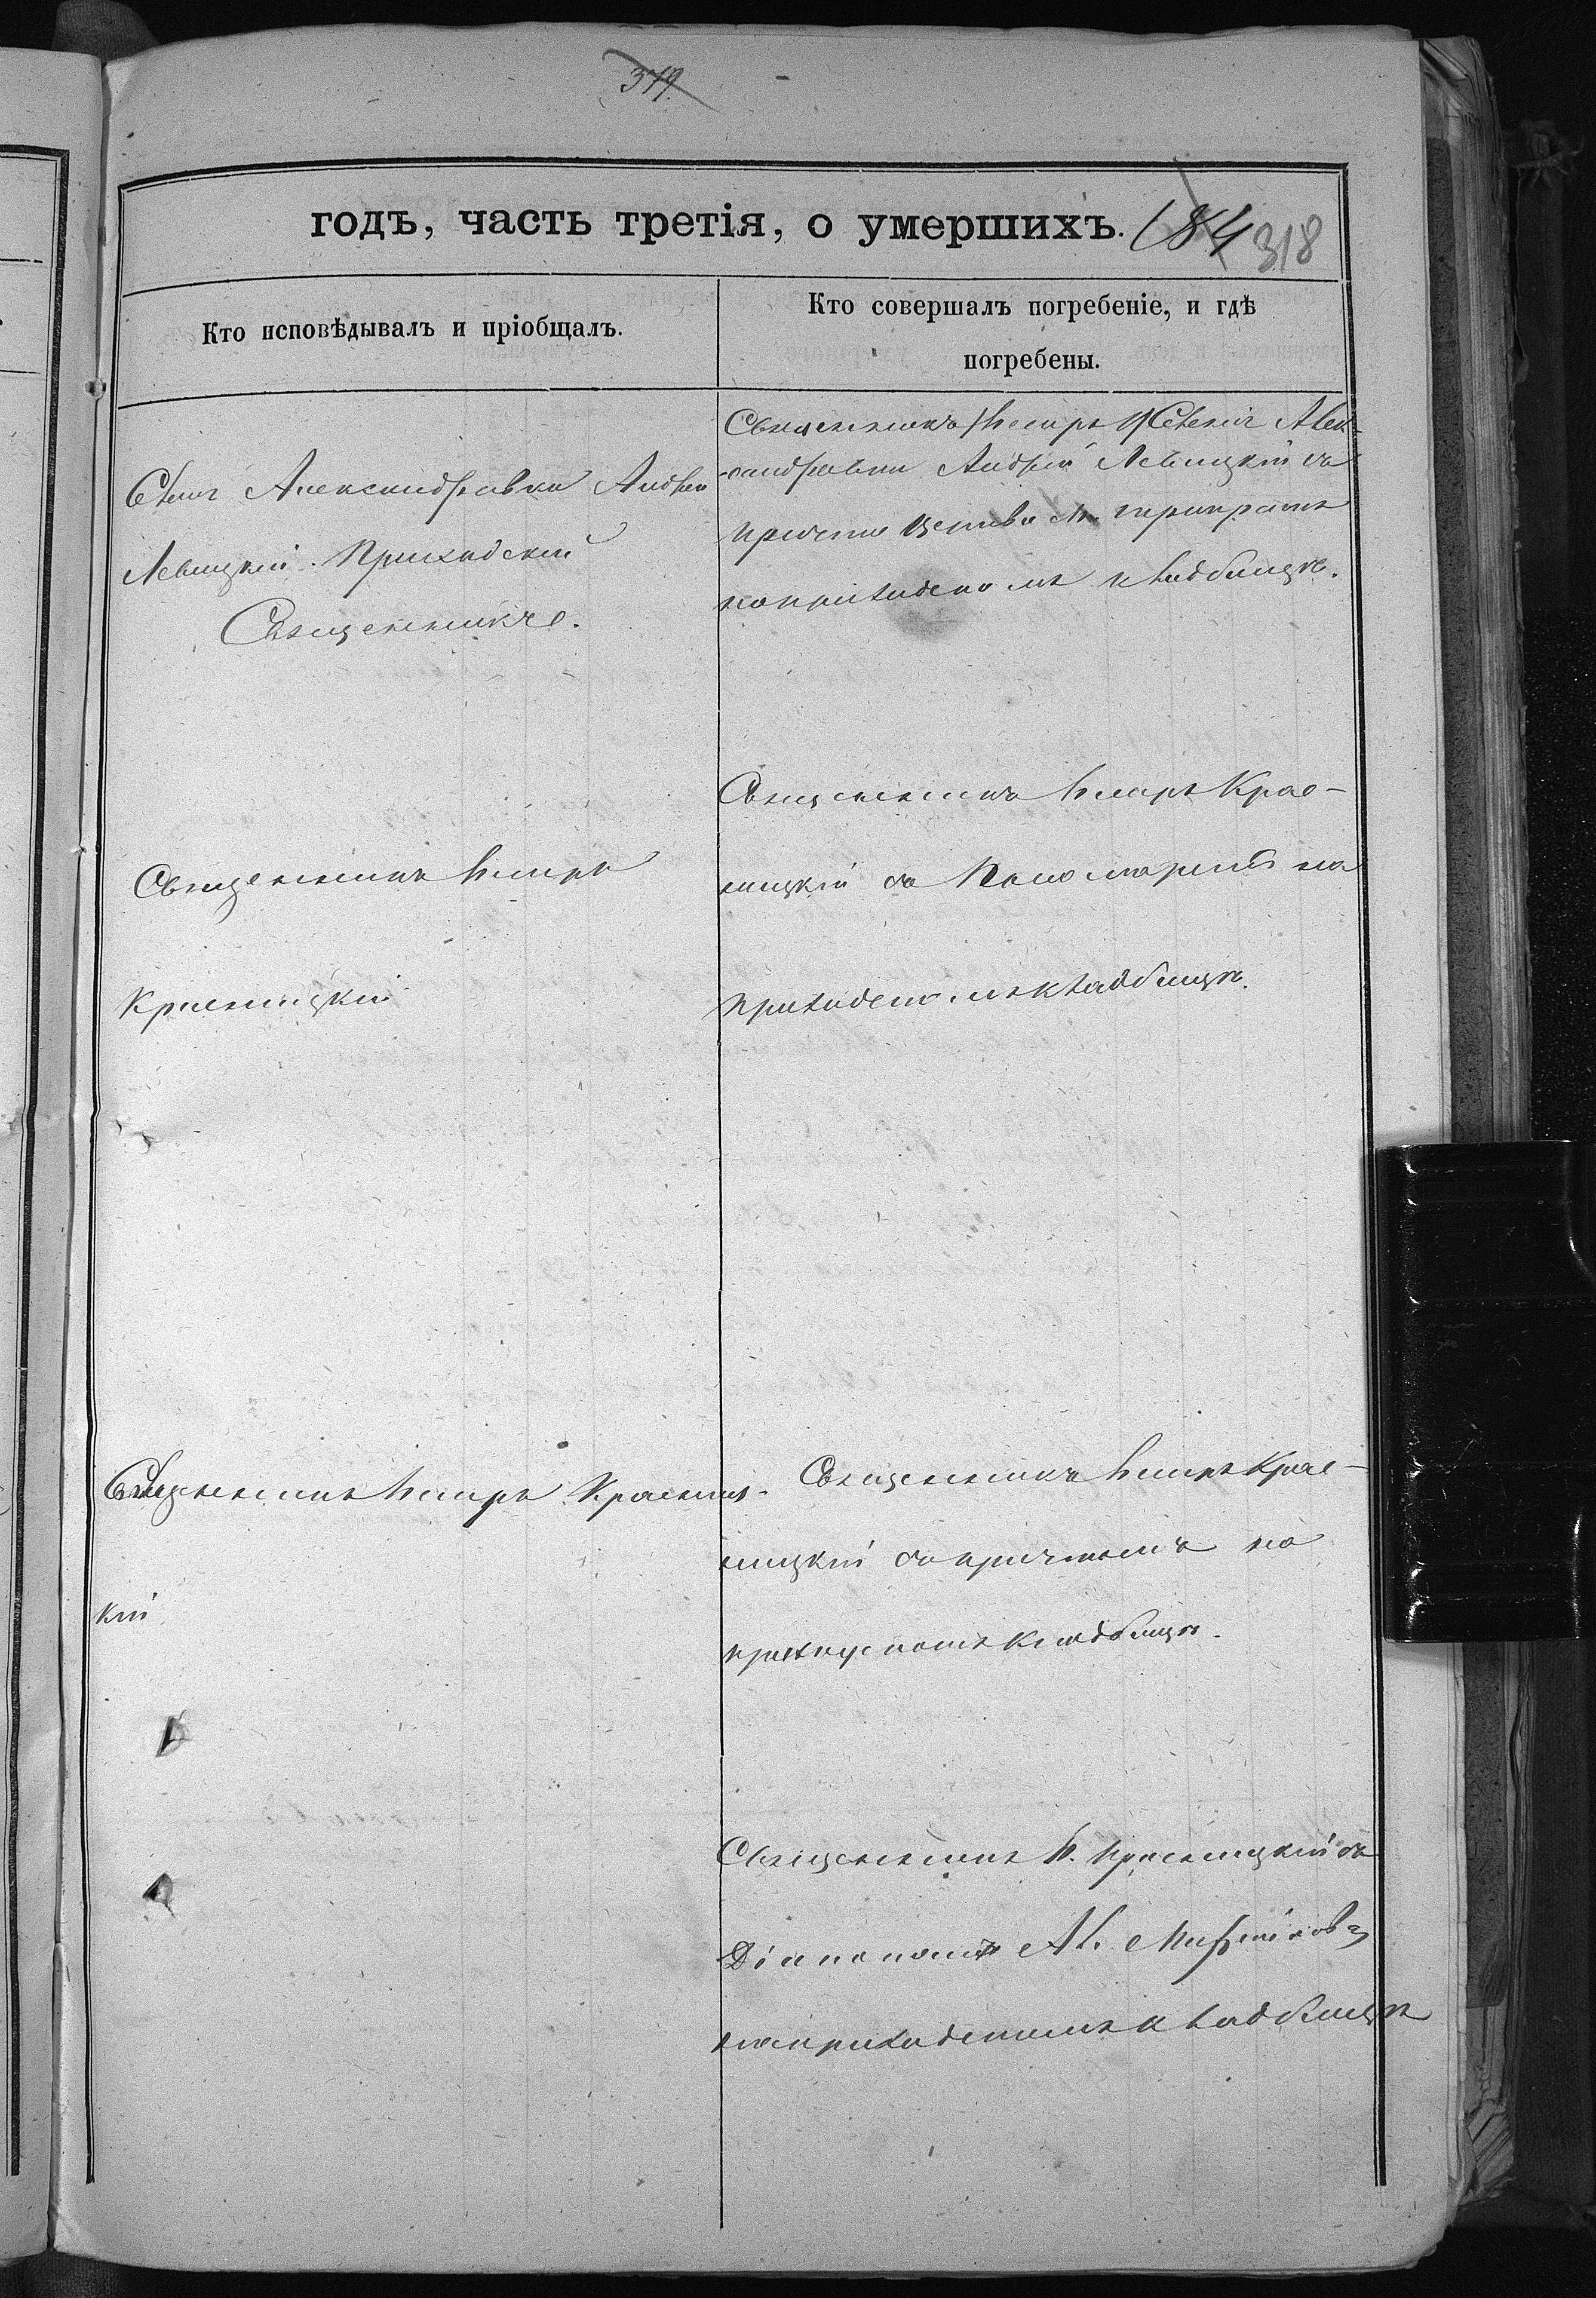 379
годъ, часть третія, о умершихъ. 184 318
Кто исповѣдывалъ и пріобщалъ.
Кто совершалъ погребеніе, и гдѣ
погребены.
Села Александровки Андрей
Левицкій. Приходскій
Священникъ.
Священникъ Села Алек-
сандровки Андрей Левицкій съ
причто
на приходскомъ кладбищѣ.
Священникъ Петръ
Красницкій
Священникъ Петръ Крас-
ницкій съ Пономаремъ на
приходскомъ кладбищѣ.
Священникъ Петръ Красниц-
кій
Священникъ Петръ Крас-
ницкій съ причтомъ на
кладбищѣ.
Священникъ П. Красницкій съ
Діакономъ Ал.
на приходскомъ кладбищѣ